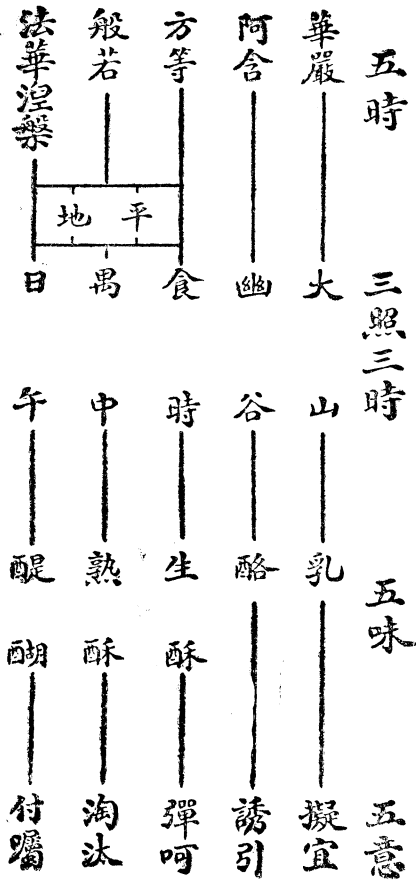 五時 三照三時 五味 五意
華嚴 大山 乳 擬宜
阿含 幽谷 酪 誘引
方等 食時 生酥 彈呵
般若 禺中 熟酥 淘汰
法華涅槃 日午 醍醐 付囑
平地